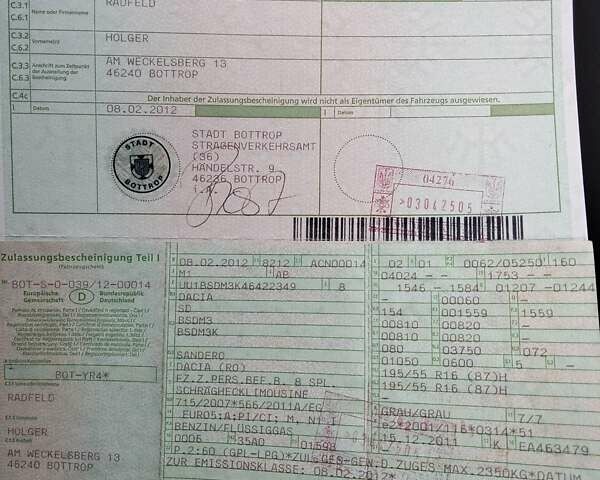 C.3.1
C.6.1
Name oder Firmenname
RADFELD
C.3.2
C.6.2
Vorname(n)
HOLGER
C.3.3
C.6.3
Anschrift zum Zeitpunkt der Ausstellung der Bescheinigung
AM WECKELSBERG 13
46240 BOTTROP
C.4c
Der Inhaber der Zulassungsbescheinigung wird nicht als Eigentümer des Fahrzeugs ausgewiesen.
I Datum
08.02.2012
I Datum
STADT BOTTROP
STADT BOTTROP
STRAßENVERKEHRSAMT
(36)
HÄNDELSTR. 9
46236 BOTTROP
i.A.
04276
>03042505
Zulassungsbescheinigung Teil I
(Fahrzeugschein)
BOT-S-0-039/12-00014
Europäische Gemeinschaft
D
Bundesrepublik Deutschland
BOT-YR4*
RADFELD
HOLGER
AM WECKELSBERG 13
46240 BOTTROP
08.02.2012 8212 ACN00014
M1 AB
UU1BSDM3K46422349 8
DACIA
SD
BSDM3
BSDM3K
SANDERO
DACIA (RO)
FZ.Z.PERS.BEF.B. 8 SPL.
SCHRÄGHECKLIMOUSINE
715/2007*566/2011A/EG
EURO5;A;PI/CI; M, N1 I
BENZIN/FLÜSSIGGAS
0006 35A0 01598
02 01 0062/05250 160
04024 -- 1753 --
1546 - 1584 01207 -01244
- 00060 --
154 001559 1559
00810 00820 --
00810 00820 --
080 03750 072
01050 0600 5 -
195/55 R16 (87)H
195/55 R16 (87)H
GRAU/GRAU 7/7
e2*2001/116*0314*51
15.12.2011 K EA463479
P.2:60 (GPL-LPG)*ZUL.GES-GEW.D.ZUGES MAX.2350KG*DATUM
ZUR EMISSIONSKLASSE: 08.02.2012*